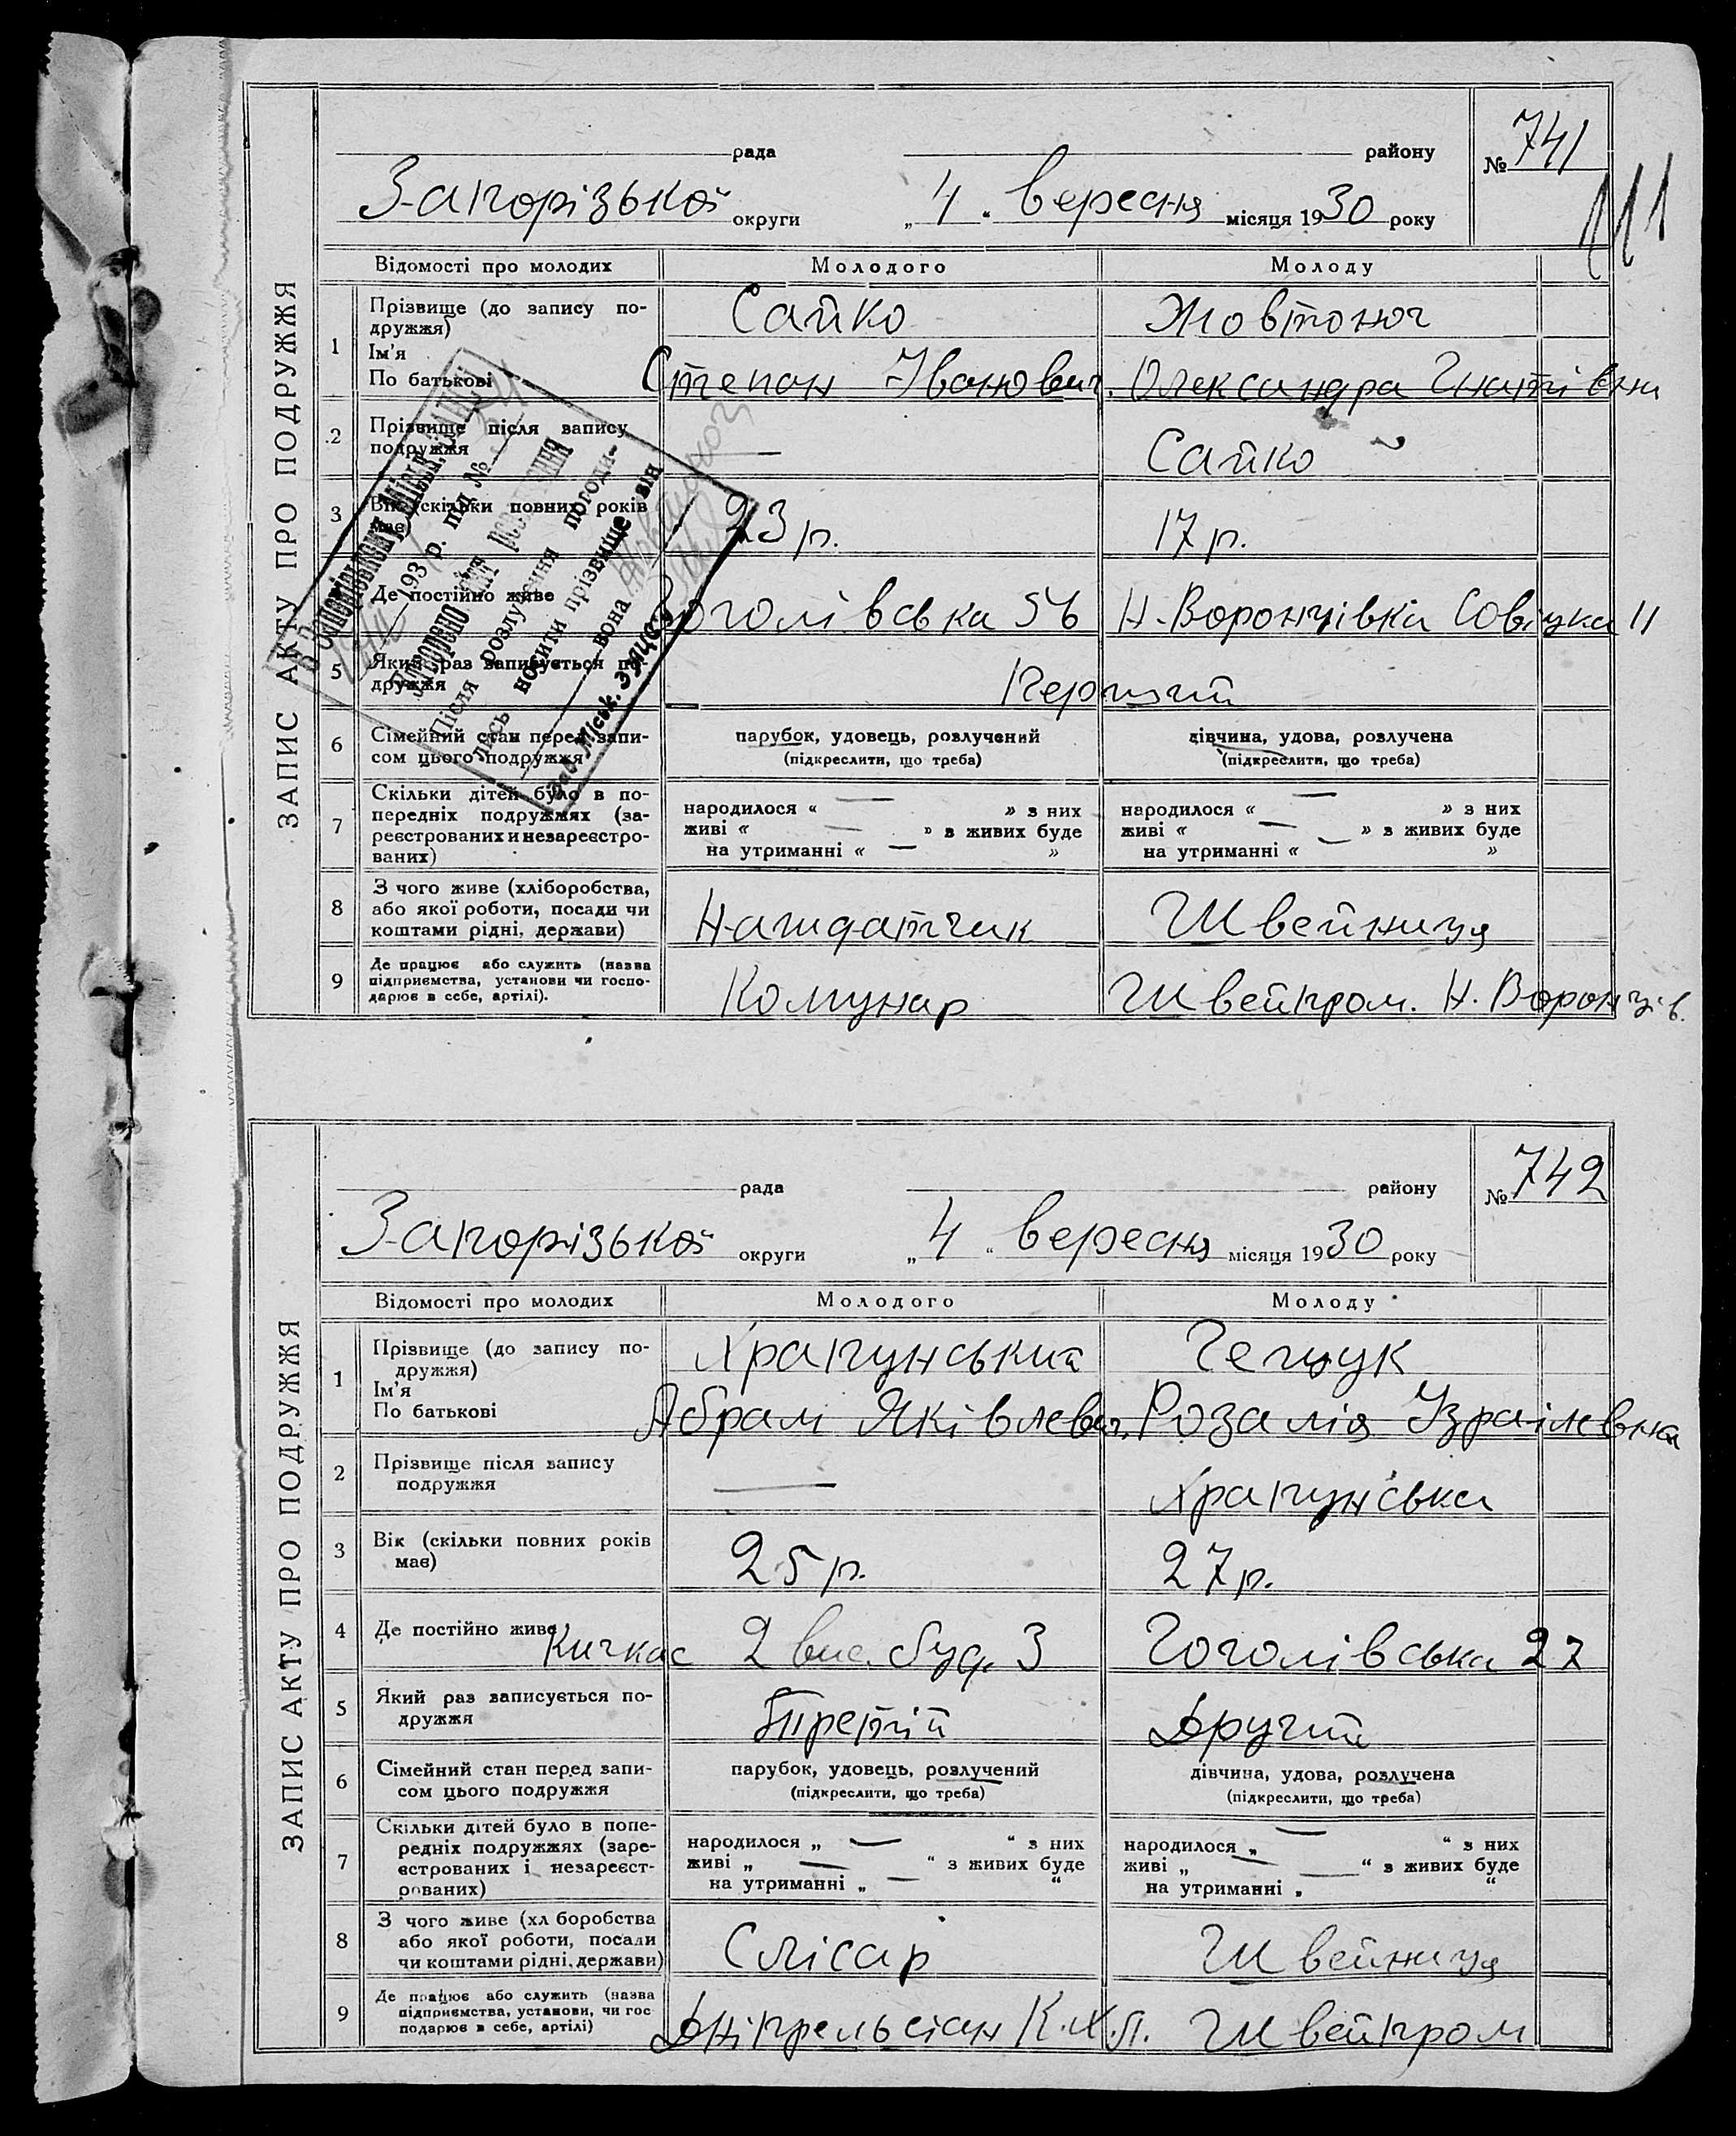 ЗАПИС АКТУ ПРО ПОДРУЖЖЯ
рада району № 741
Запорізької округи „4“ вересня місяця 1930 року
111
Відомості про молодих Молодого Молоду
1 Прізвище (до запису по-
дружжя)
Ім'я
По батькові
Сайко
Степан Іванович
Жовтоног
Олександра Гнатівна
2 Прізвище після запису
подружжя
— Сайко
3 Вік (скільки повних років
має)
23 р. 17 р.
Де постійно живе
Гоголівська 56 Н-Воронцівка Совіцка 11
5 Який раз записується по-
дружжя
Перший
6 Сімейний стан перед запи-
сом цього подружжя
парубок, удовець, розлучений
(підкреслити, що треба)
дівчина, удова, розлучена
(підкреслити, що треба)
7 Скільки дітей було в по-
передніх подружжях (за-
реєстрованих и незареєстро-
ваних)
народилося « — » з них
живі « — » з живих буде
на утриманні « — »
народилося « — » з них
живі « — » з живих буде
на утриманні « — »
8 З чого живе (хліборобства,
або якої роботи, посади чи
коштами рідні, держави)
Наждатчик Швейниця
9 Де працює або служить (назва
підприємства, установи чи госпо-
дарює в себе, артілі).
Комунар Швейпром. Н. Воронців.
В Запорізькому Міськ. ЗАГСі
193 р. під №
Створено акт розлучення
Після розлучення погоди-
лись носити прізвище він
вона
Зав. Міськ. ЗАГСу
ЗАПИС АКТУ ПРО ПОДРУЖЖЯ
рада району № 742
Запорізької округи „4“ вересня місяця 1930 року
Відомості про молодих Молодого Молоду
1 Прізвище (до запису по-
дружжя)
Ім'я
По батькові
Храпунський
Абрам Яківлевич
Розалія Ізраїлевна
2 Прізвище після запису
подружжя
— Храпунська
3 Вік (скільки повних років
має)
25 р. 27 р.
4 Де постійно живе
Кичкас 2 вис. буд. 3 Гоголівська 27
5 Який раз записується по-
дружжя
Третій Другий
6 Сімейний стан перед запи-
сом цього подружжя
парубок, удовець, розлучений
(підкреслити, що треба)
дівчина, удова, розлучена
(підкреслити, що треба)
7 Скільки дітей було в попе-
редніх подружжях (заре-
єстрованих і незареєст-
рованих)
народилося „ — “ з них
живі „ — “ з живих буде
на утриманні „ — “
народилося „ — “ з них
живі „ — “ з живих буде
на утриманні „ — “
8 З чого живе (хл боробства
або якої роботи, посади
чи коштами рідні, держави)
Слісар Швейниця
9 Де працює або служить (назва
підприємства, установи, чи гос
подарює в себе, артілі)
Дніпрельстан К.Х.П. Швейпром